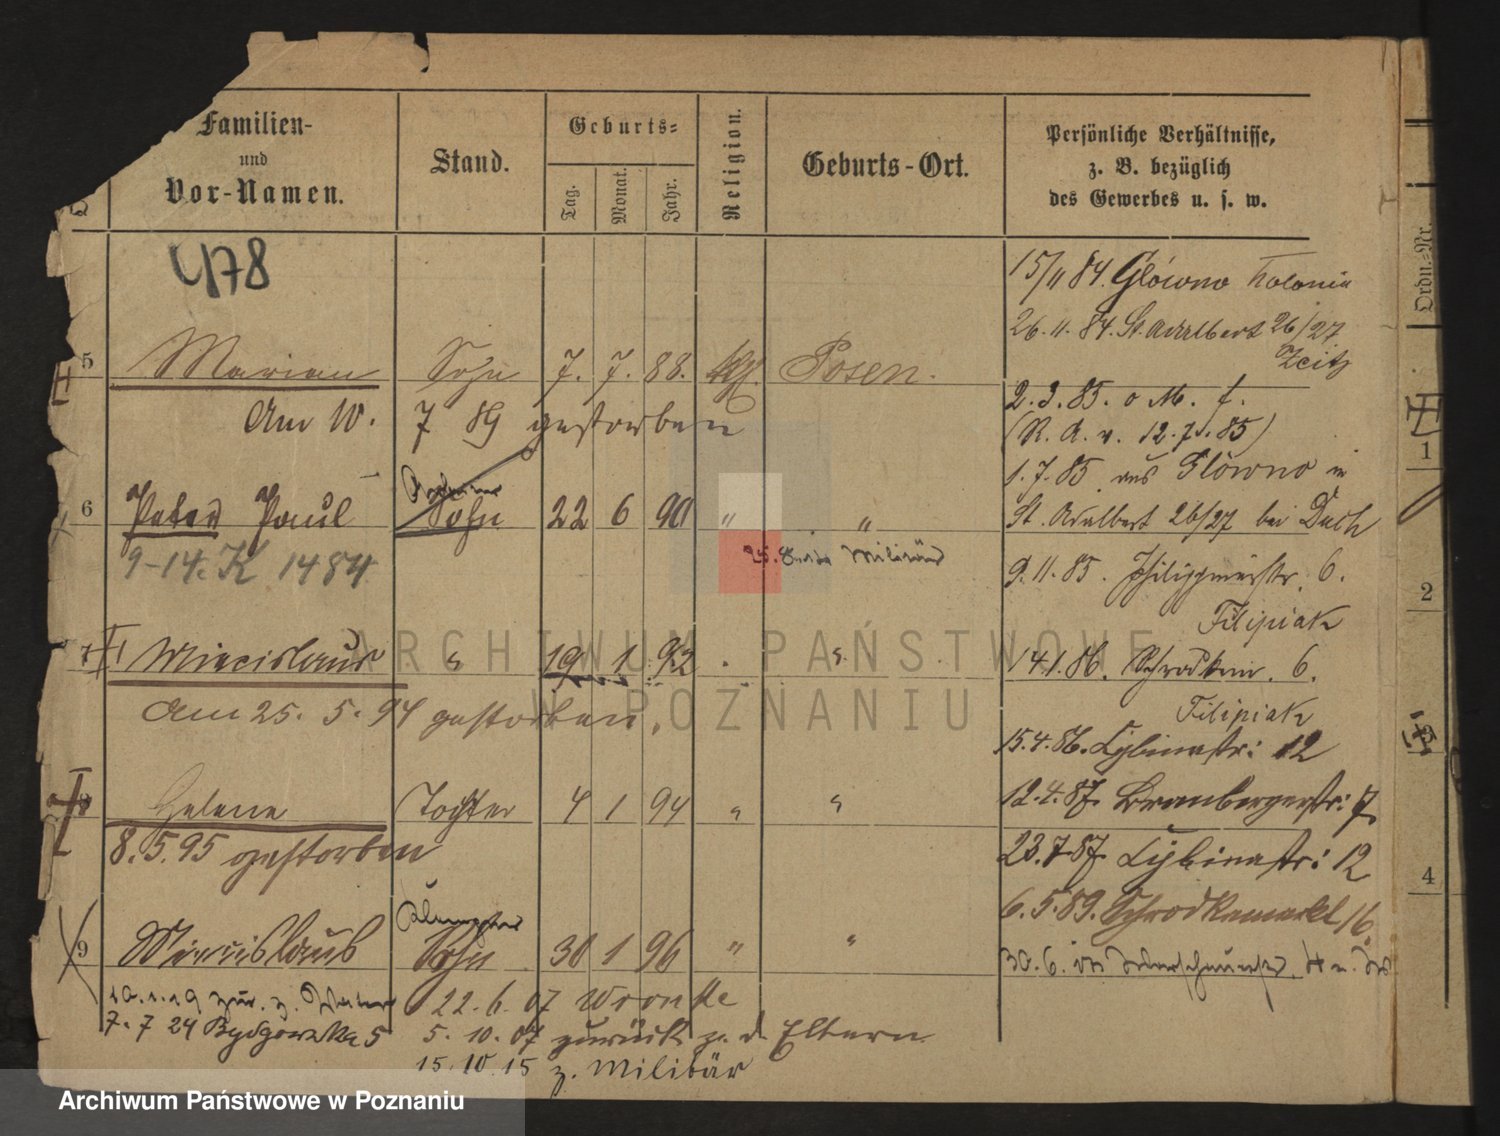 Familien-
und
Vor-Namen.
Stand.
Geburts-
Tag.
Monat.
Jahr.
Religion.
Geburts-Ort.
Persönliche Verhältnisse,
z. B. bezüglich
des Gewerbes u. s. w.
Ordn.-Nr.
478
5 Marian Sohn 7. 7. 88. Posen.
Am 10. 7 89 gestorben
6 Peter Paul Sohn 22 6 90 " "
9-14. K 1484
Militär
7 Miecislaus " 19 1 92 "
Am 25. 5. 94 gestorben.
8 Helene Tochter 4 1 94 " "
8.5.95 gestorben
9 Miecislaus Sohn 30 1 96 " "
10.1.19 zur. z.
7.7 24 Bydgowska 5
22.6.07 Wronke
5. 10. 07 zurück z. d. Eltern
15.10.15 z. Militär
15/11 84. Glówno Kolonie
26.11.84. St. Adalbert 26/27
2.3.85. o M. f.
(R. A. v. 12.7.85)
1.7.85 aus Glówno in
St. Adalbert 26/27 bei
9.11.85. 6.
Filipiak
14.1.86. Schrodka 6.
Filipiak
15.4.86. Cybinastr: 12
12.4.87. Brombergerstr: 7
23.7.87. Cybinastr: 12
6.5.89. Schrodkamarkt 16.
30.6.
1
2
3
4
ARCHIWUM PAŃSTWOWE
W POZNANIU
Archiwum Państwowe w Poznaniu